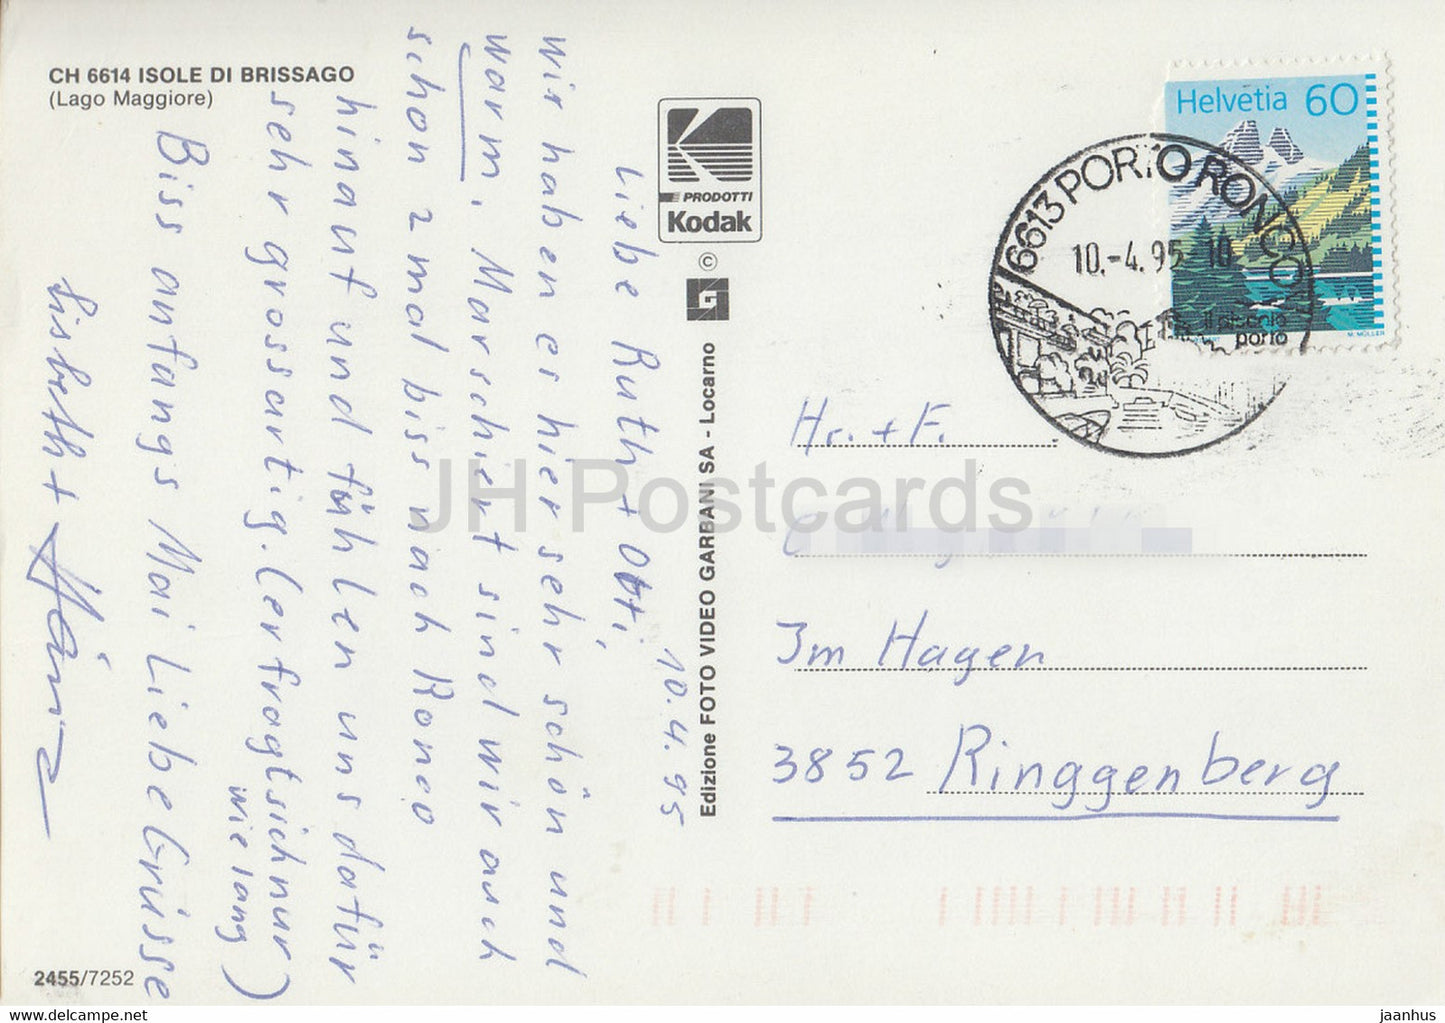 CH 6614 ISOLE DI BRISSAGO
(Lago Maggiore)
PRODOTTI
Kodak
©
Edizione FOTO VIDEO GARBANI SA - Locarno
2455/7252
10.4.95
Liebe Ruth + Otti,
wir haben es hier sehr schön und
warm. Marschiert sind wir auch
schon 2 mal biss nach Ronco
hinauf und fühlen uns dafür
sehr grossartig. (erfragt sich nur
wie lang)
Biss anfangs Mai Liebe Grüsse
Lisbeth + Heinz
Helvetia 60
M. MÜLLER
6613 PORTO RONCO
10.-4.95 10
porto
Hr. + F.
Im Hagen
3852 Ringgenberg
JH Postcards
https://www.delcampe.net
jaanhus